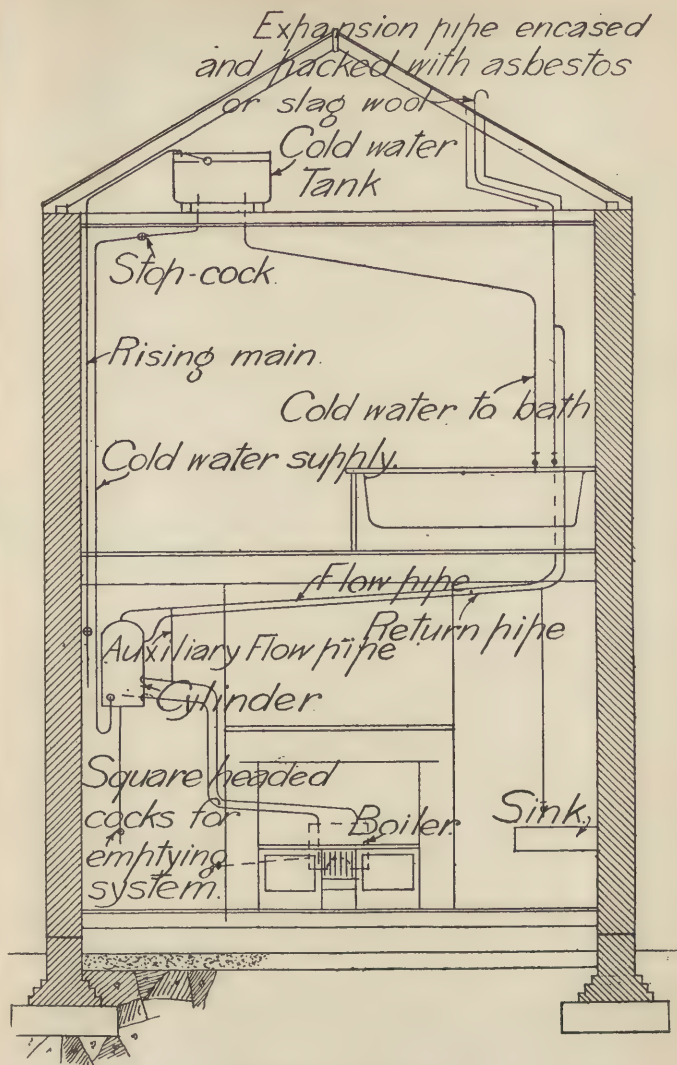 Expansion pipe encased
and packed with asbestos
or slag wool
Cold water
Tank
Stop-cock.
Rising main.
Cold water to bath
Cold water supply.
Flow pipe.
Return pipe
Auxiliary Flow pipe
Cylinder
Square headed
cocks for
emptying
system.
Boiler.
Sink.